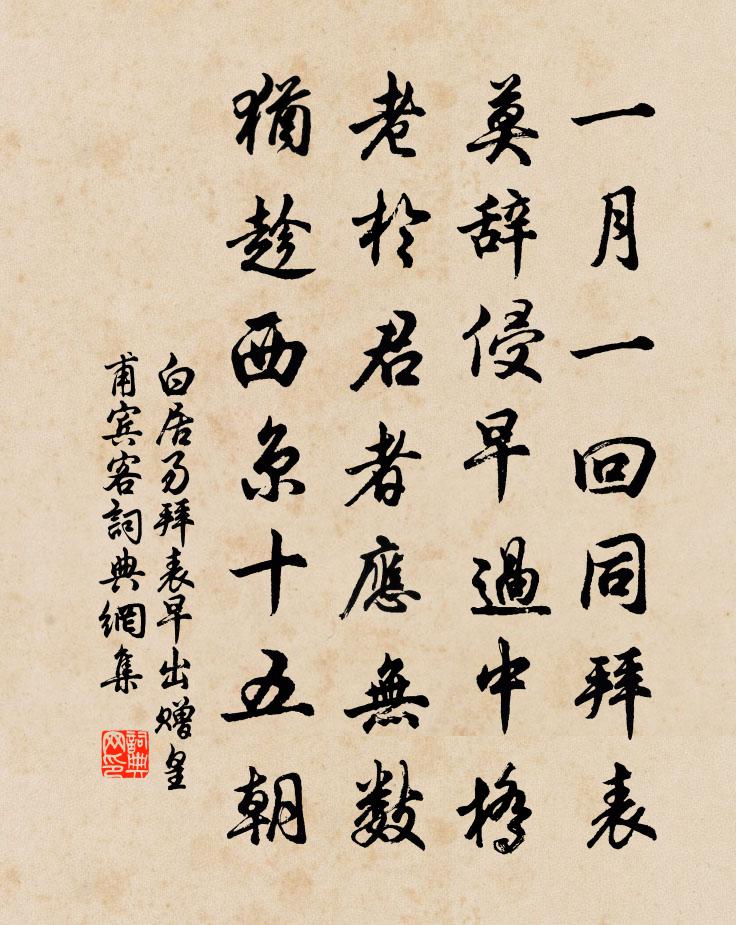 一月一回同拜表
莫辞侵早過中橋
老於君者應無數
猶趁西京十五朝
白居易拜表早出赠皇
甫宾客詞典網集
詞典
网印